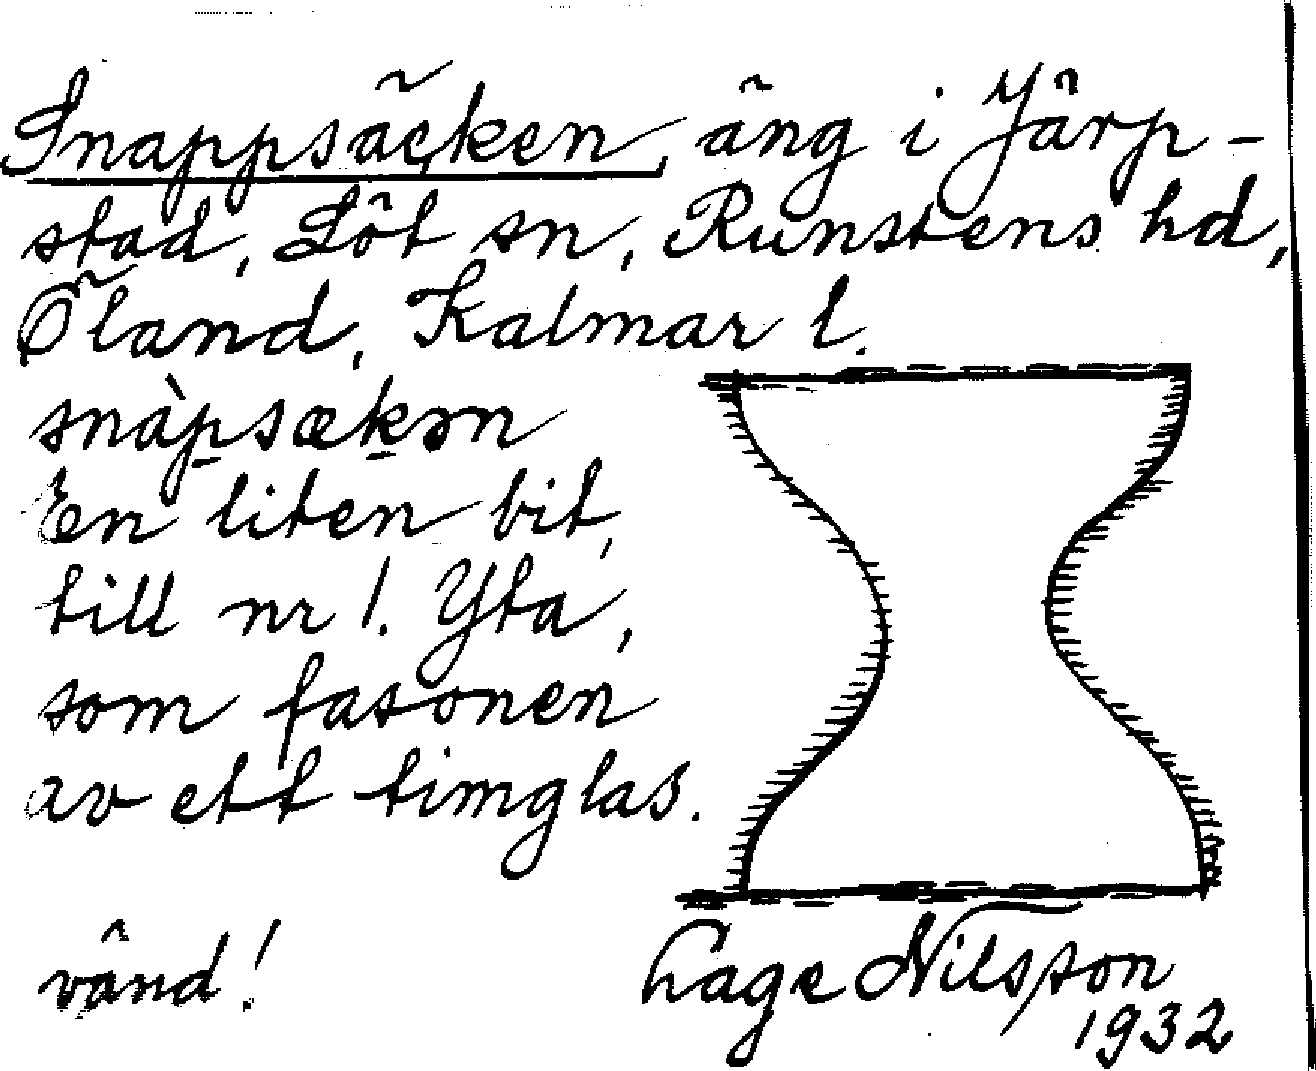 Snappsäcken, äng i Järp-
stad, Löt sn, Runstens hd,
Öland, Kalmar l.
snàp̠sæk̠ən
En liten bit,
till nr 1. Yta,
som fasonen
av ett timglas.
vänd!
Hage Nilsson
1932